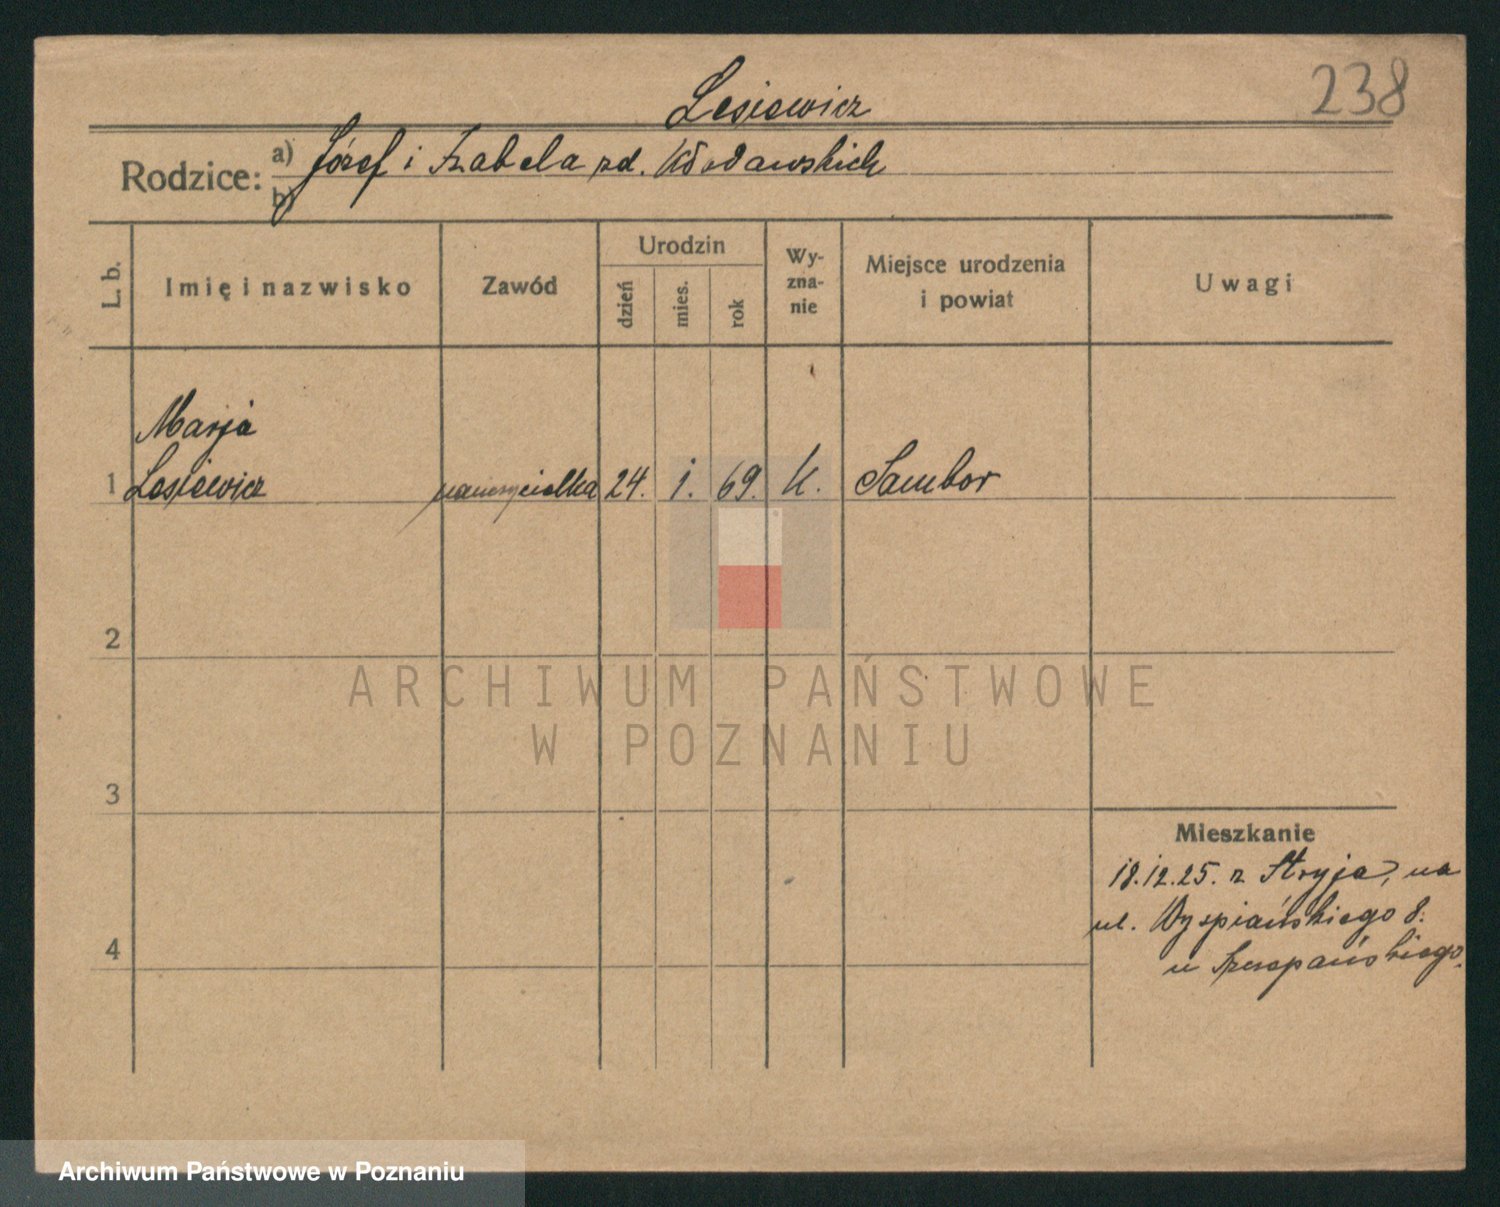 238
Lesiewicz
Rodzice: a) Józef i Izabela zd. Kłodawskich
b)
L. b.
Imię i nazwisko
Zawód
Urodzin
dzień
mies.
rok
Wy-
zna-
nie
Miejsce urodzenia
i powiat
Uwagi
Marja
1 Lesiewicz nauczycielka 24. i. 69. k. Sambor
2
ARCHIWUM PAŃSTWOWE
W POZNANIU
3
Mieszkanie
18.12.25. z Stryja, na
ul. Wyspiańskiego 8.
u Szczepańskiego.
4
Archiwum Państwowe w Poznaniu